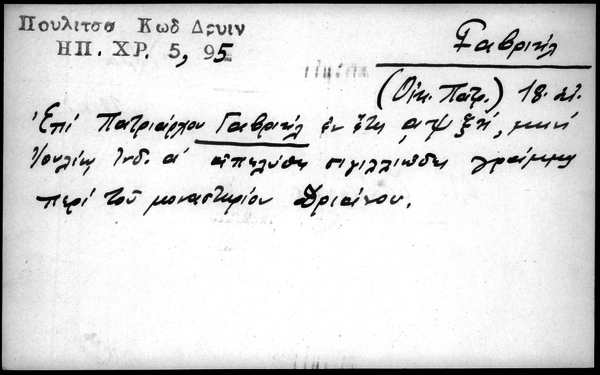 Πουλιτσα Κωδ Δρυιν
ΗΠ. ΧΡ. 5, 95
Γαβριήλ
(Οἰκ. Πατρ.) 18. αἰ.
Ἐπί Πατριάρχου Γαβριήλ ἐν ἔτει αψξή, μηνί
Ἰουλίῳ Ἰνδ. α' ἀπελύθη σιγιλλιῶδες γράμμα
περί τοῦ μοναστηρίου Δρυαίνου.